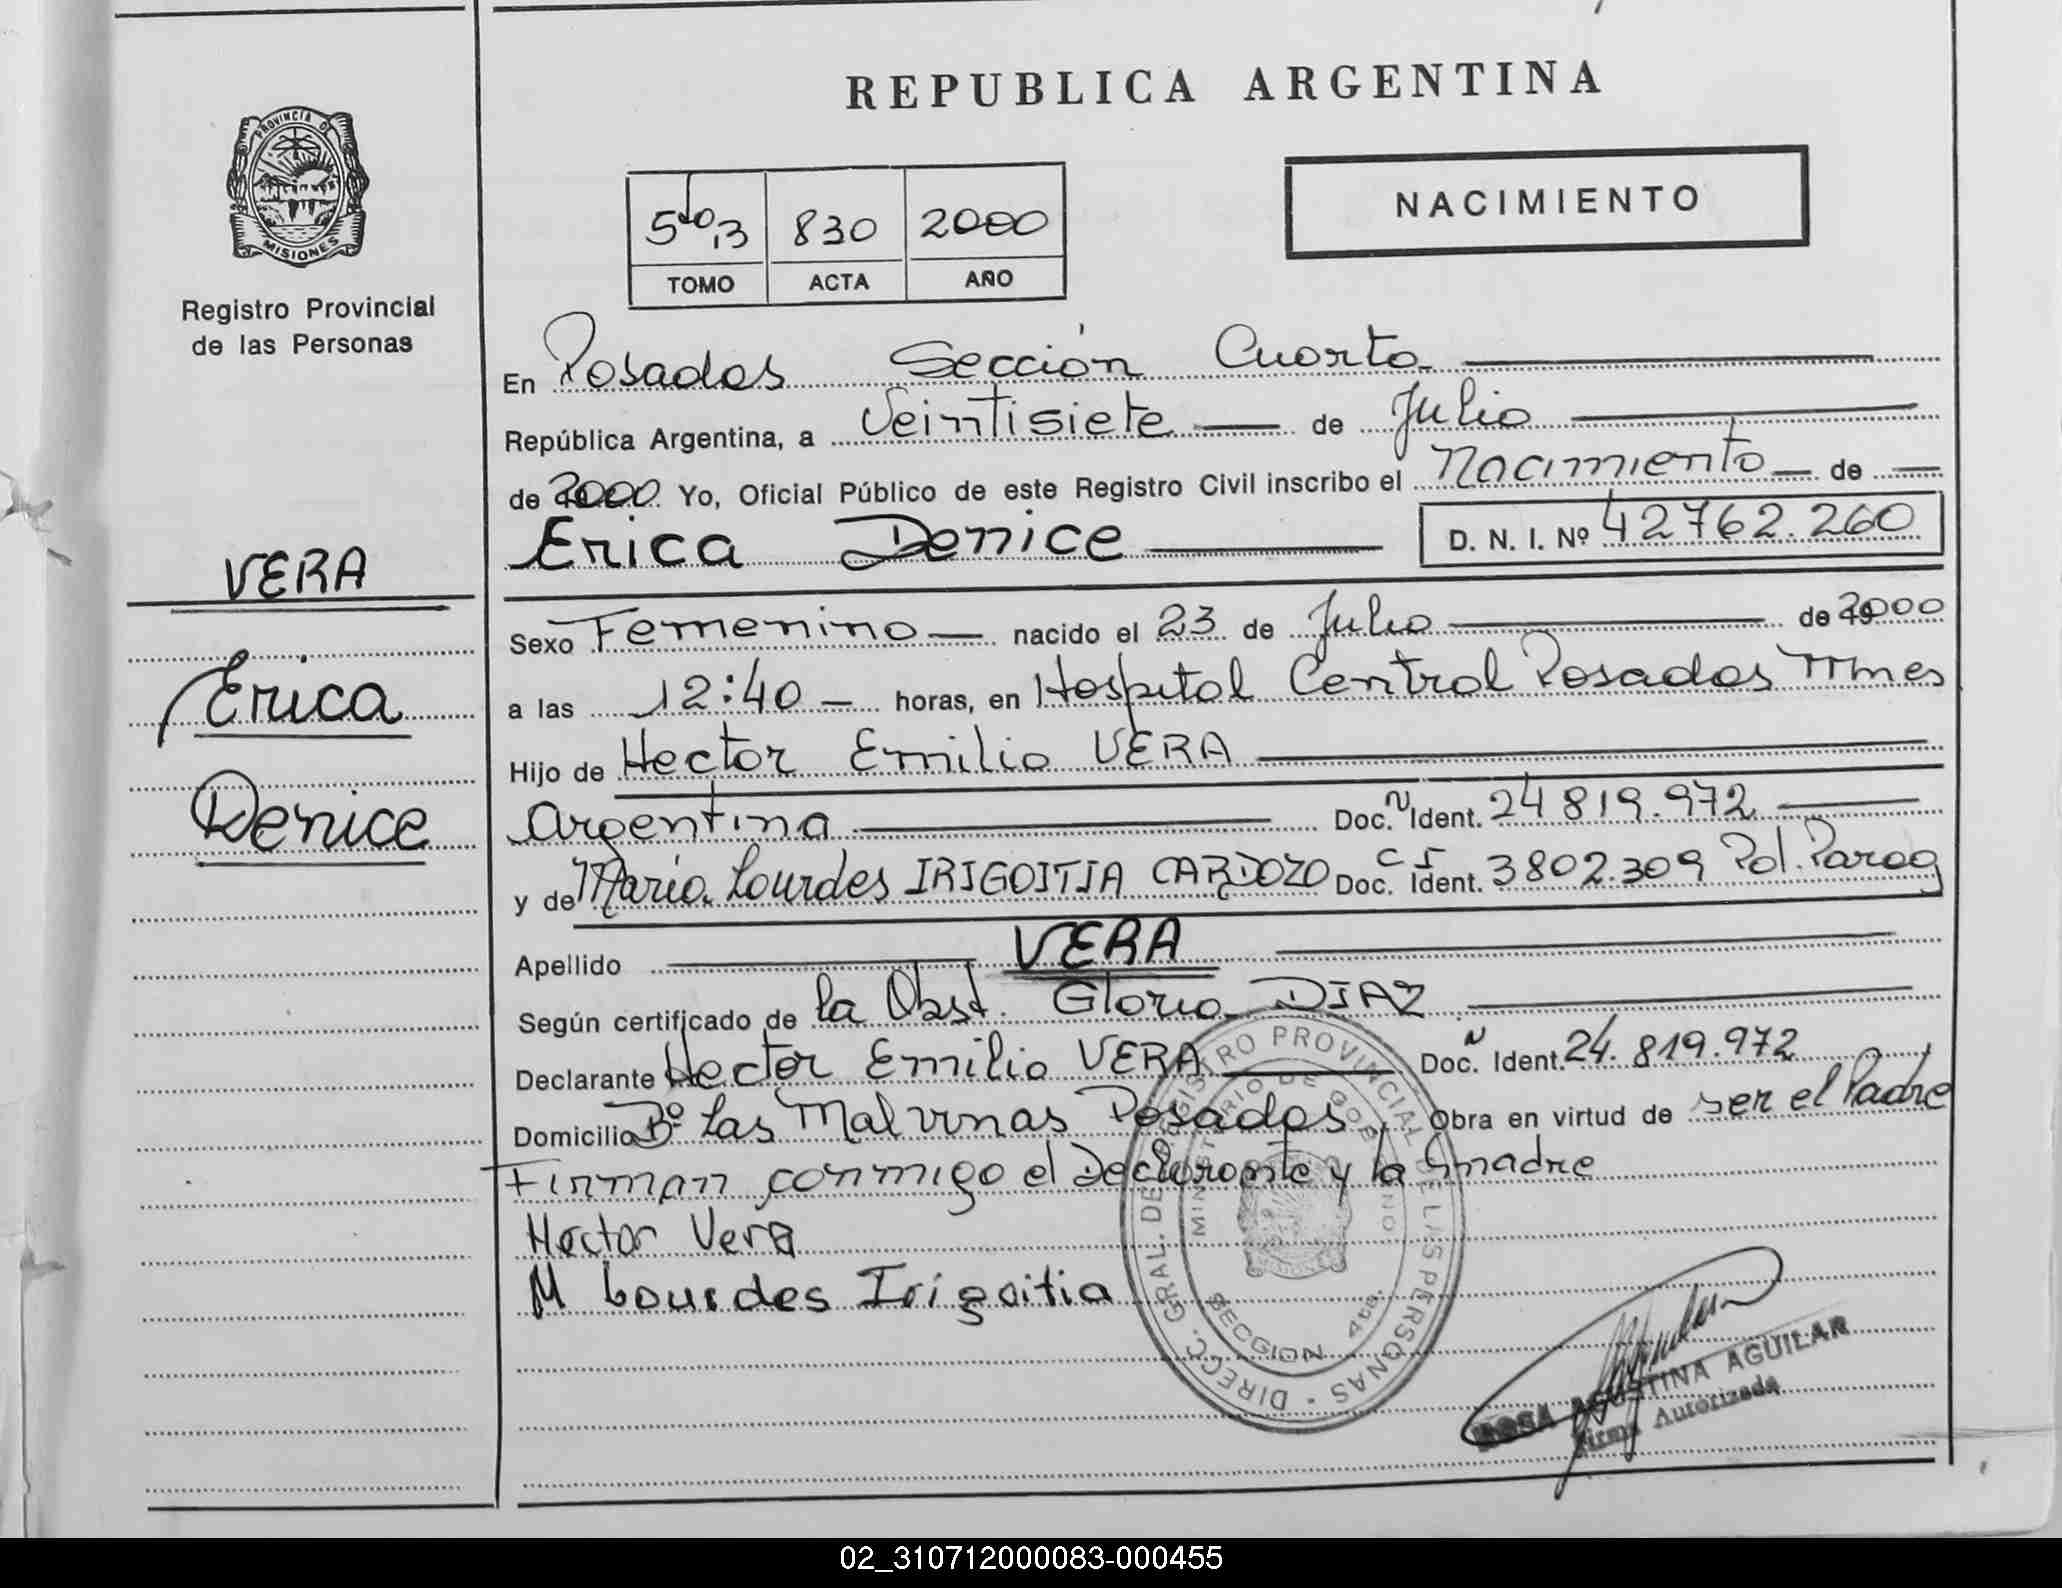 REPUBLICA ARGENTINA
PROVINCIA DE
MISIONES
Registro Provincial
de las Personas
NACIMIENTO
5to,3 830 2000
TOMO ACTA AÑO
En Posadas Sección Cuarta
República Argentina, a Veintisiete de Julio
de 2000 Yo, Oficial Público de este Registro Civil inscribo el Nacimiento de
Erica Denice D. N. I. Nº 42762.260
VERA
Erica
Denice
Sexo Femenino nacido el 23 de Julio de 2000
a las 12:40 horas, en Hospital Central Posadas Mnes
Hijo de Hector Emilio VERA
Argentina Doc. N Ident. 24819.972
y de Maria Lourdes IRIGOITIA CARDOZO Doc. C I Ident. 3802.309 Pol. Parag
Apellido VERA
Según certificado de la Obst. Gloria DIAZ
Declarante Hector Emilio VERA Doc. N Ident. 24.819.972
Domicilio Bº Las Malvinas Posadas Obra en virtud de ser el Padre
Firman conmigo el Declarante y la madre
Hector Vera
M Lourdes Irigoitia
DIRECC. GRAL. DE REGISTRO PROVINCIAL DE LAS PERSONAS
MINISTERIO DE GOBIERNO
SECCION 4ta.
ROSA AGUSTINA AGUILAR
Firma Autorizada
02_310712000083-000455